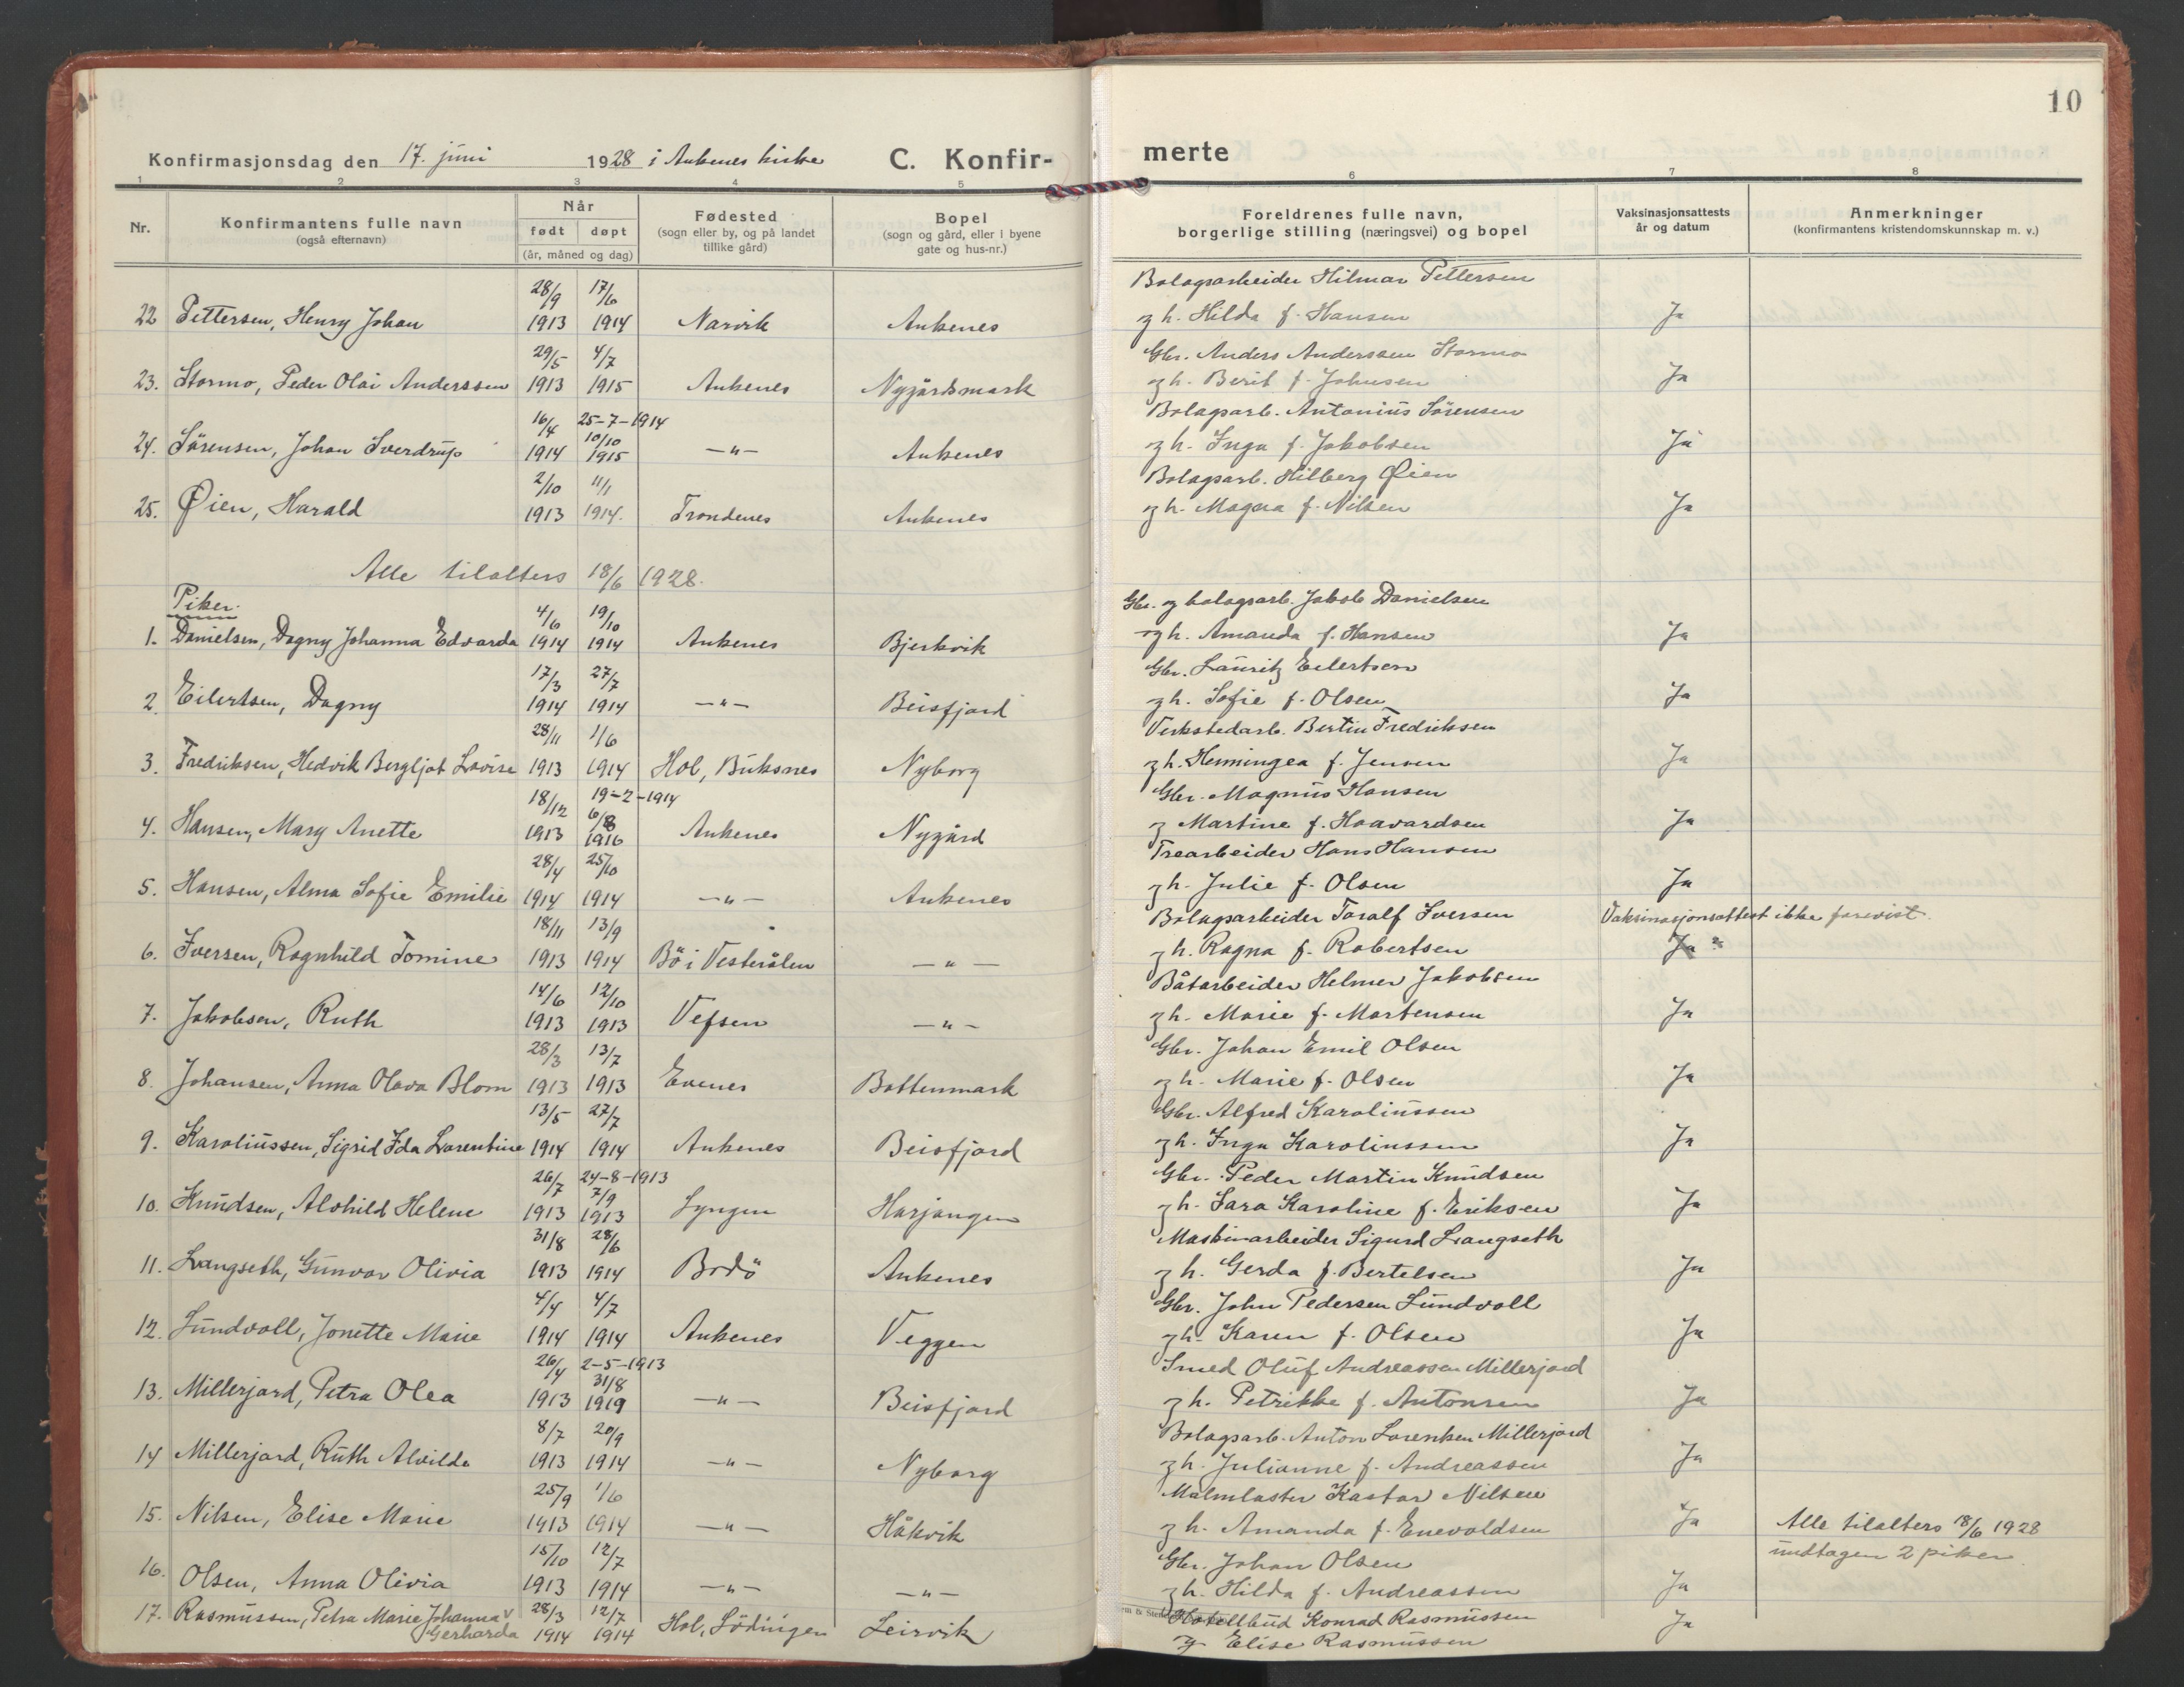 10
Konfirmasjonsdag den 17. juni 1928 i Ankenes kirke C. Konfir-
merte
1 2 3 4 5 6 7 8
Nr. Konfirmantens fulle navn (også efternavn) Når født døpt (år, måned og dag) Fødested (sogn eller by, og på landet tillike gård) Bopel (sogn og gård, eller i byene gate og hus-nr.) Foreldrenes fulle navn, borgerlige stilling (næringsvei) og bopel Vaksinasjonsattests år og datum Anmerkninger (konfirmantens kristendomskunnskap m. v.)
28/9 17/6 Bolagsarbeider Hilmar Pettersen
22 Pettersen, Henry Johan 1913 1914 Narvik Ankenes og h. Hilda f. Hansen Ja
29/5 4/7 Gbr. Anders Anderssen Stormo
23. Stormo, Peder Olai Anderssen 1913 1915 Ankenes Nygårdsmark og h. Berit f. Johnsen Ja
16/4 25-7-1914 Bolagsarb. Antonius Sørensen
24. Sørensen, Johan Sverdrup 1914 10/10 1915 —"— Ankenes og h. Inga f. Jakobsen Ja
2/10 11/1 Bolagsarb. Hilberg Øien
25. Øien, Harald 1913 1914. Trondenes Ankenes og h. Magna f. Nilsen Ja
Alle tilalters 18/6 1928.
Piker.
4/6 19/10 Gbr. og bolagsarb. Jakob Danielsen
1. Danielsen, Dagny Johanna Edvarda 1914 1914 Ankenes Bjerkvik og h. Amanda f. Hansen Ja
17/3 27/7 Gbr. Lauritz Eilertsen
2. Eilertsen, Dagny 1914 1914 —"— Beisfjord og h. Sofie f. Olsen Ja
28/11 1/6 Verkstedarb. Bertin Fredriksen
3. Fredriksen, Hedvik Bergljot Lovise 1913 1914 Hol, Buksnes Nyborg og h. Henningea f. Jensen Ja
18/12 19-2-1914 Gbr. Magnus Hansen
4. Hansen, Mary Anette 1913 6/8 1916 Ankenes Nygård og Martine f. Haavardsen Ja
28/4 25/10 Trearbeider Hans Hansen
5. Hansen, Alma Sofie Emilie 1914 1914 —"— Ankenes og h. Julie f. Olsen Ja
18/11 13/9 Bolagsarbeider Toralf Iversen Vaksinasjonsattest ikke forevist.
6. Iversen, Ragnhild Tomine 1913 1914 Bö i Vesterålen —"— og h. Ragna f. Robertsen Ja
14/6 12/10 Båtarbeider Helmer Jakobsen
7. Jakobsen, Ruth 1913 1913 Vefsen —"— og h. Marie f. Martensen Ja
28/3 13/7 Gbr. Johan Emil Olsen
8. Johansen, Anna Olava Blom 1913 1913 Evenes Bottenmark og h. Marie f. Olsen Ja
13/5 27/7 Gbr. Alfred Karoliussen
9. Karoliussen, Sigrid Ida Lorentine 1914 1914 Ankenes Beisfjord og h. Inga Karoliussen Ja
26/7 24-8-1913 Gbr. Peder Martin Knudsen
10. Knudsen, Alvhild Helene 1913 7/9 1913 Lyngen Harjangen og h. Sara Karoline f. Eriksen Ja
31/8 28/6 Maskinarbeider Sigurd Langseth
11. Langseth, Gunvor Olivia 1913 1914 Bodö Ankenes og h. Gerda f. Bertelsen Ja
4/4 4/7 Gbr. John Pedersen Lundvoll
12. Lundvoll, Jonette Marie 1914 1914 Ankenes Veggen og h. Karen f. Olsen Ja
26/4 2-5-1913 Smed Oluf Andreassen Millerjord
13. Millerjord, Petra Olea 1913 31/8 1919 —"— Beisfjord og h. Petrikke f. Antonsen Ja
8/7 20/9 Bolagsarb. Anton Lorentsen Millerjord
14 Millerjord, Ruth Alvilda 1913 1914 —"— Nyborg og h. Julianne f. Andreassen Ja
25/9 1/6 Malmlaster Kastor Nilsen
15. Nilsen, Elise Marie 1913 1914 —"— Håkvik og h. Amanda f. Enevoldsen Ja Alle tilalters 18/6 1928
undtagen 2 piker.
15/10 12/7 Gbr. Johan Olsen
16. Olsen, Anna Olivia 1913 1914 —"— —"— og h. Hilda f. Andreassen Ja
17. Rasmussen, Petra Marie Johanna 28/3 12/7 Hol, Lödingen Leirvik Hotellbud Konrad Rasmussen Ja
Gerharda 1914 1914 og Elise Rasmussen